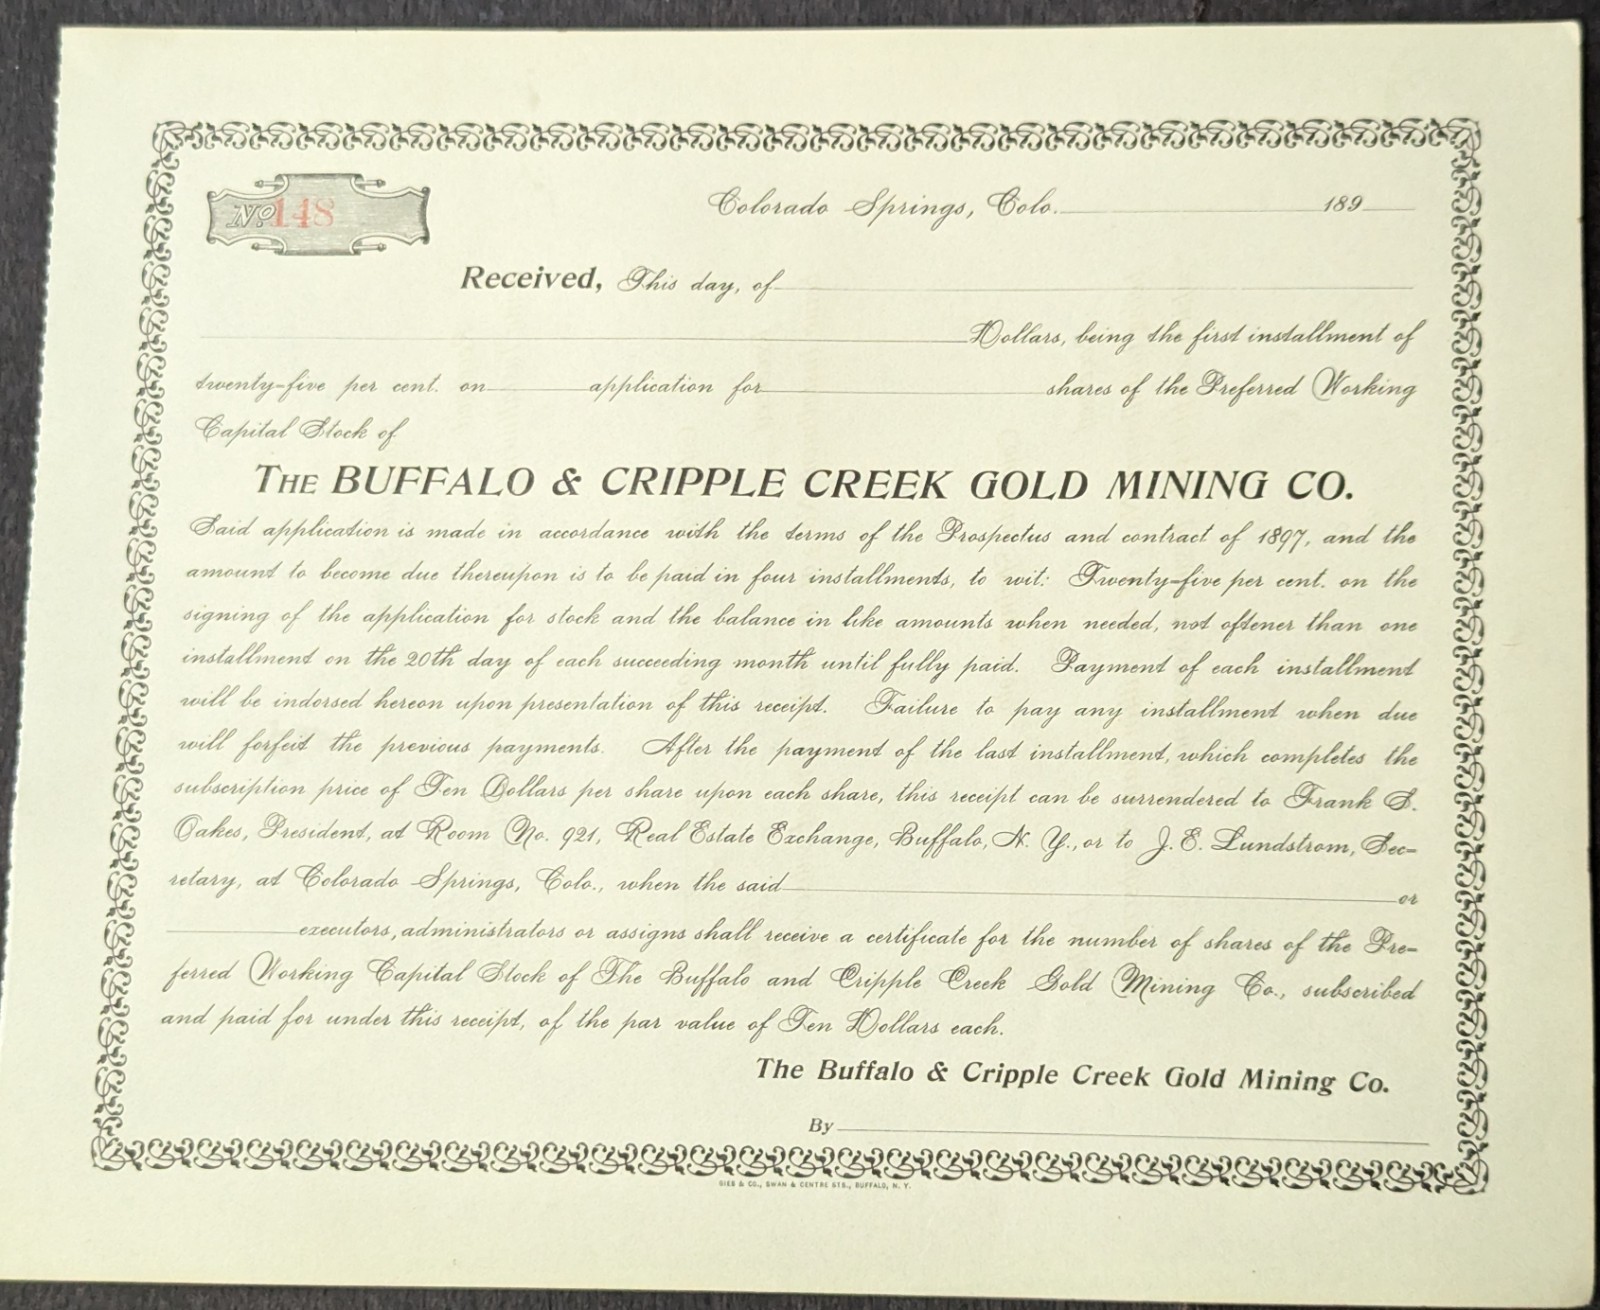 No 148
Colorado Springs, Colo. 189
Received, This day, of
Dollars, being the first installment of
twenty-five per cent. on application for shares of the Preferred Working
Capital Stock of
THE BUFFALO & CRIPPLE CREEK GOLD MINING CO.
Said application is made in accordance with the terms of the Prospectus and contract of 1897, and the
amount to become due thereupon is to be paid in four installments, to wit: Twenty-five per cent. on the
signing of the application for stock and the balance in like amounts when needed, not oftener than one
installment on the 20th day of each succeeding month until fully paid. Payment of each installment
will be indorsed hereon upon presentation of this receipt. Failure to pay any installment when due
will forfeit the previous payments. After the payment of the last installment, which completes the
subscription price of Ten Dollars per share upon each share, this receipt can be surrendered to Frank S.
Oakes, President, at Room No. 921, Real Estate Exchange, Buffalo, N. Y., or to J. E. Lundstrom, Sec-
retary, at Colorado Springs, Colo., when the said or
executors, administrators or assigns shall receive a certificate for the number of shares of the Pre-
ferred Working Capital Stock of The Buffalo and Cripple Creek Gold Mining Co., subscribed
and paid for under this receipt, of the par value of Ten Dollars each.
The Buffalo & Cripple Creek Gold Mining Co.
By
GIES & CO., SWAN & CENTRE STS., BUFFALO, N. Y.